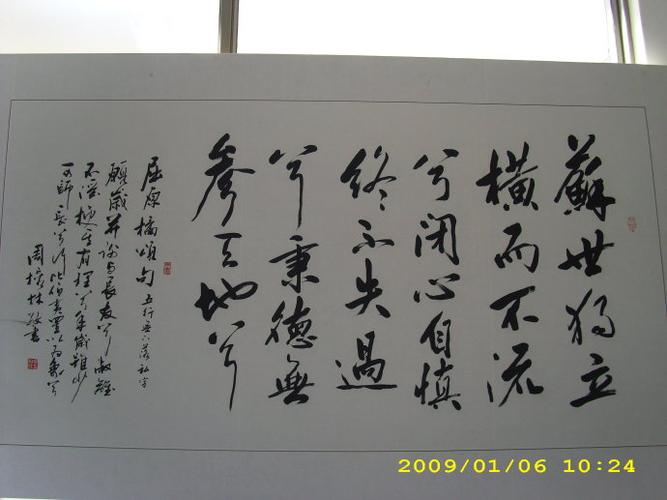 蘇世獨立
横而不流
兮闭心自慎
终不失過
兮秉德無
参天地兮
屈原橘頌句 五行
願歲并謝與長友兮淑離
不淫梗其有理兮年歲雖少
可師長兮行比伯夷置以為象兮
周 林敬書
2009/01/06 10:24